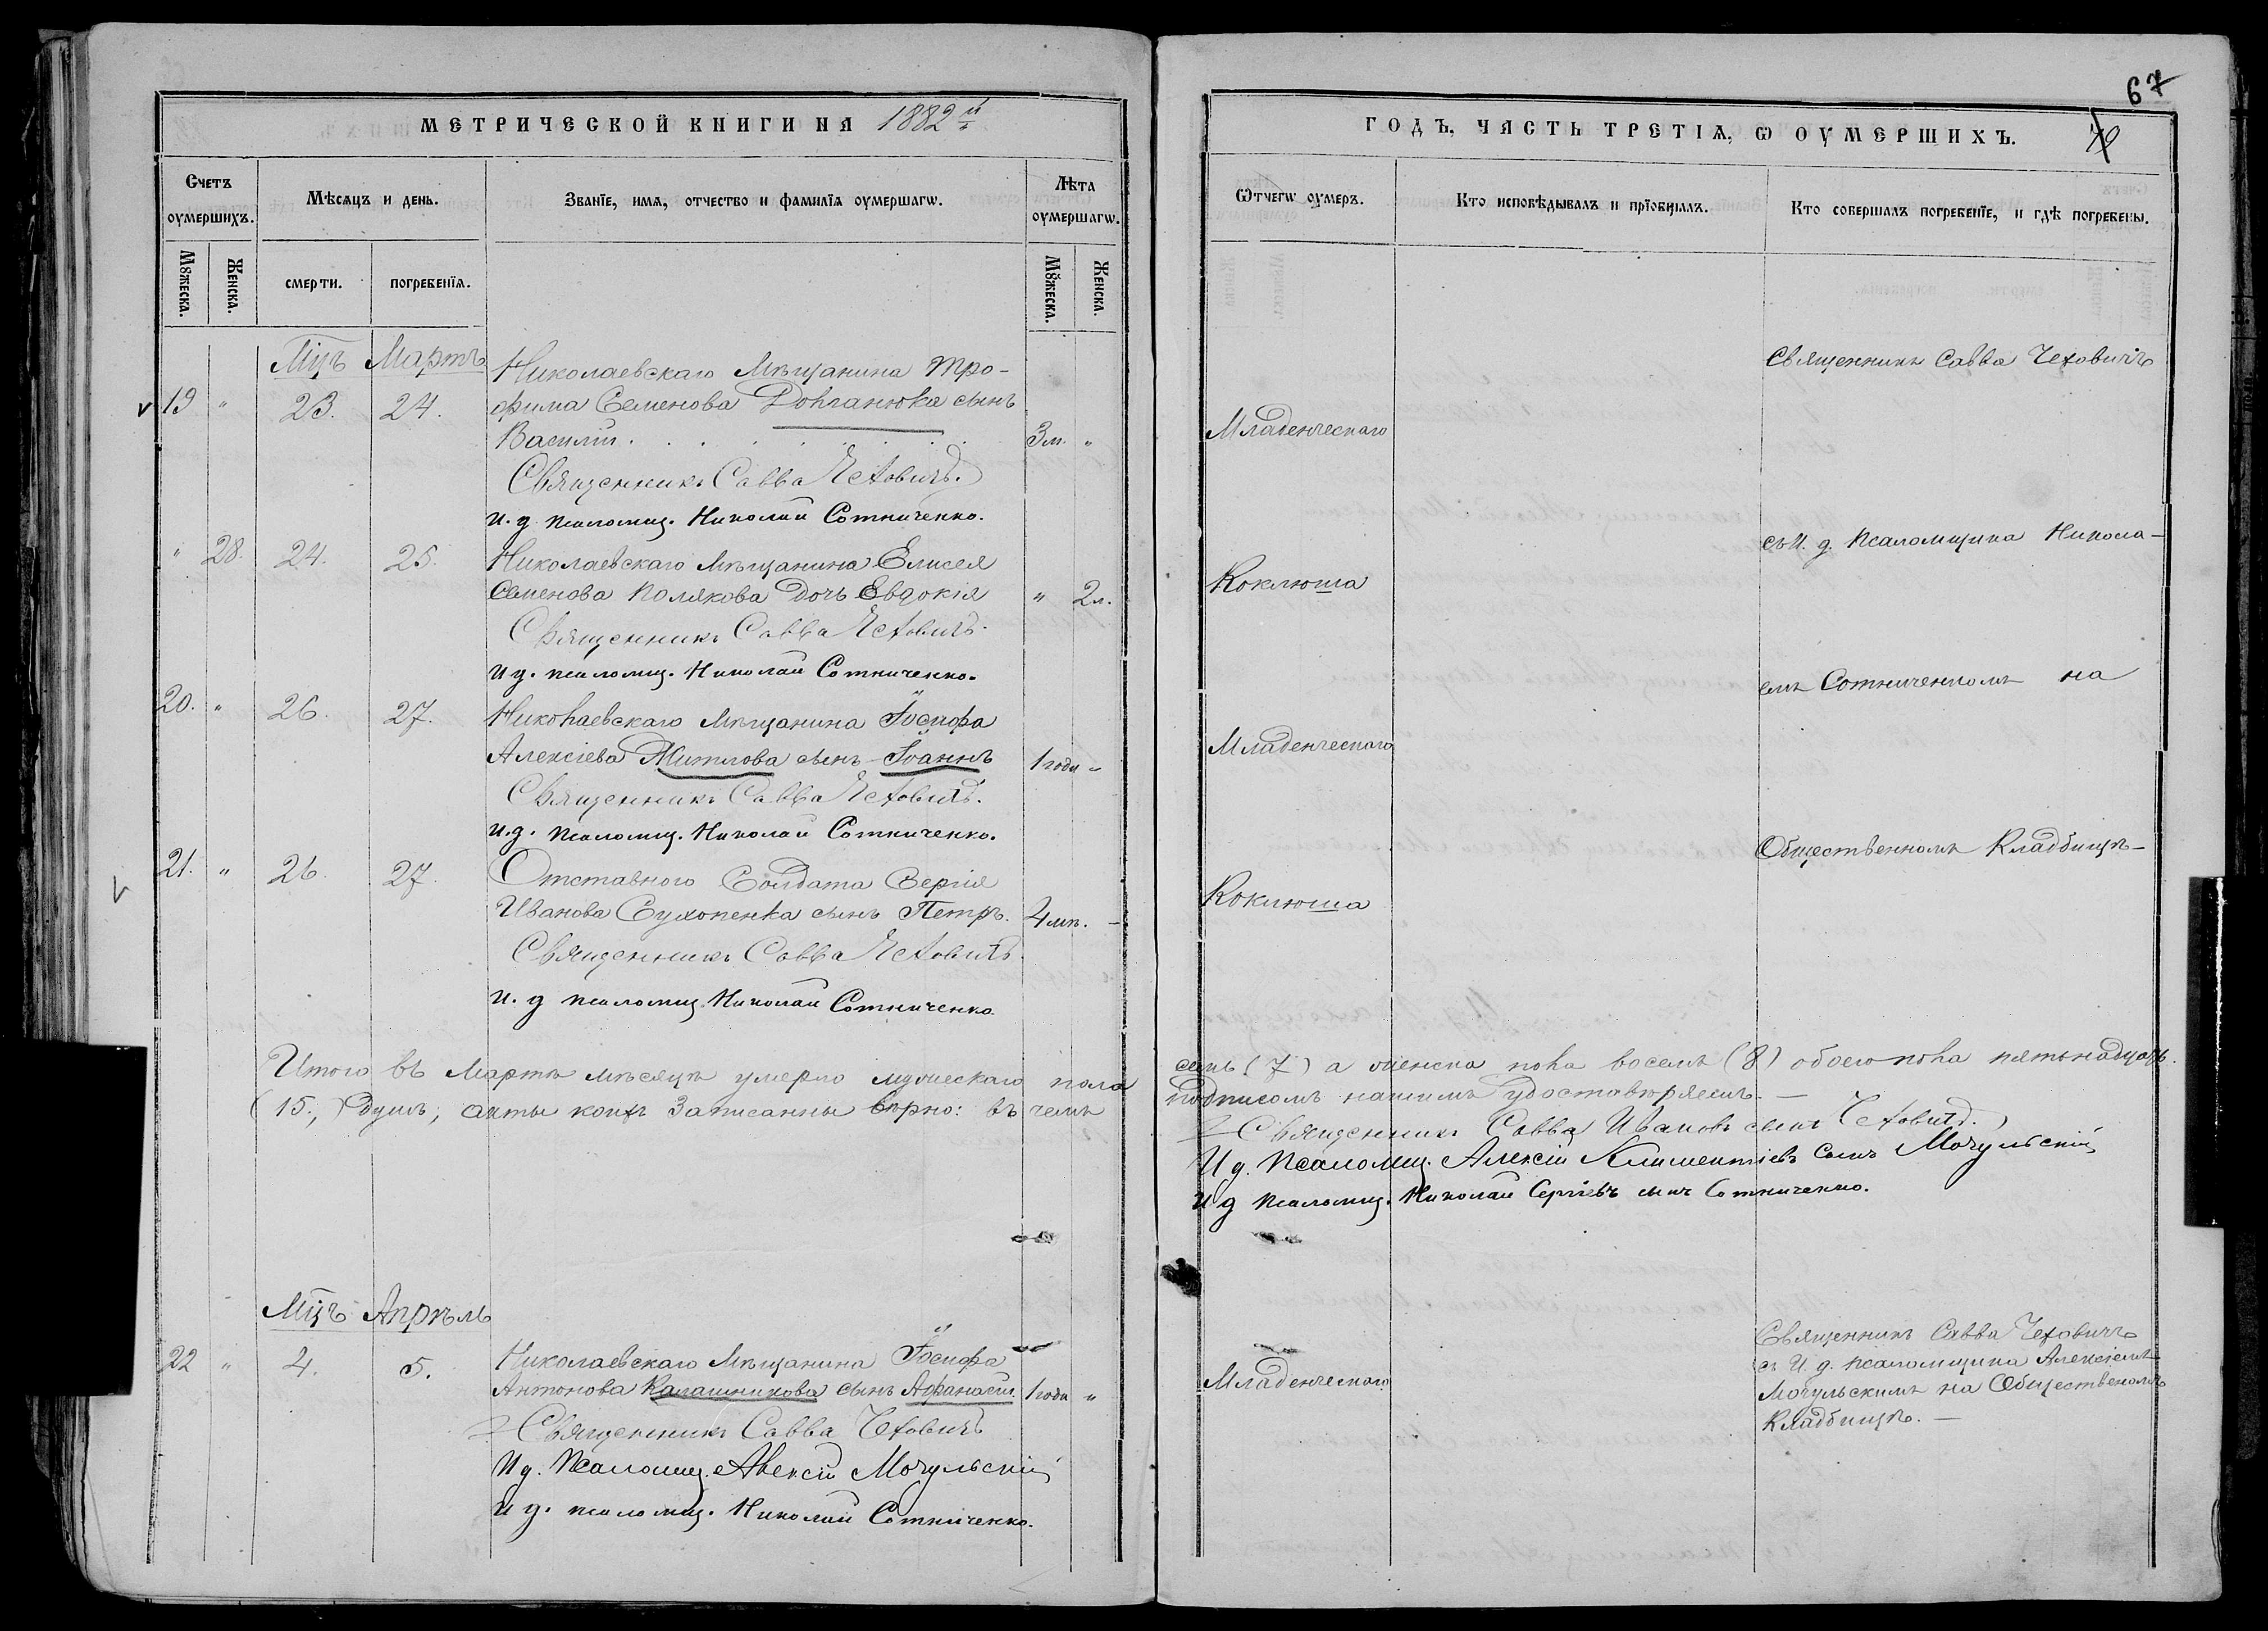 МЕТРИЧЕСКОЙ КНИГИ НА 1882й
Счетъ оумершихъ.
Мѣсяцъ и день.
Званїе, имя, отчество и фамилїя оумершагѡ.
Лѣта оумершагѡ.
Мꙋжеска.
Женска.
смерти.
погребенїя.
Мꙋжеска.
Женска.
Мцъ Мартъ
19 " 23. 24. Николаевскаго Мѣщанина Тро-
фима Семенова Довганюка сынъ
Василій . . . . . . . . 3 м. "
Священникъ Савва Чеховичъ.
И. д. псаломщ. Николай Сотниченко.
" 28. 24. 25. Николаевскаго Мѣщанина Елисея
Семенова Полякова дочь Евдокія " 2 л.
Священникъ Савва Чеховичъ.
И д. псаломщ. Николай Сотниченко.
20. " 26. 27. Николаевскаго Мѣщанина Іосифа
Алексіева Житлова сынъ Іоаннъ 1 года "
Священникъ Савва Чеховичъ.
И. д. псаломщ. Николай Сотниченко.
21. " 26. 27. Отставного Солдата Сергія
Иванова Сухопенка сынъ Петръ. 4 мѣ. -
Священникъ Савва Чеховичъ.
И. д псаломщ. Николай Сотниченко
Итого въ Мартѣ мѣсяцѣ умерло мужескаго пола
(15,) душъ; акты коихъ записанны вѣрно: въ чемъ
Мцъ Апрѣль
22 " 4. 5. Николаевскаго Мѣщанина Іосифа
Антонова Калашникова сынъ Афанасій 1 года "
Священникъ Савва Чеховичъ
И д. Псаломщ. Алексій Мочульскій
И д. псаломщ. Николай Сотниченко.
67
ГОДЪ, ЧАСТЬ ТРЕТІЯ, Ѡ ОУМЕРШИХЪ.
Ѿчегѡ оумеръ.
Кто исповѣдывалъ и прїобщалъ.
Кто совершалъ погребенїе, и гдѣ погребены.
Священникъ Савва Чеховичъ
Младенческаго
съ И. д. Псаломщика Никола-
Коклюша
емъ Сотниченкомъ на
Младенческаго
Общественномъ Кладбищѣ-
Коклюша
семь (7) а женска пола восемь (8) обоего пола пятьнадцать.
подписомъ нашимъ удостовѣряемъ. —
Священникъ Савва Ивановъ сынъ Чеховичъ.
И д. Псаломщ. Алексій Климентіевъ сынъ Мочульскій
И д псаломщ. Николай Сергіевъ сынъ Сотниченко.
Священникъ Савва Чеховичъ
съ И д. псаломщика Алексіемъ
Младенческаго
Мочульскимъ на Общественомъ
Кладбищѣ. —